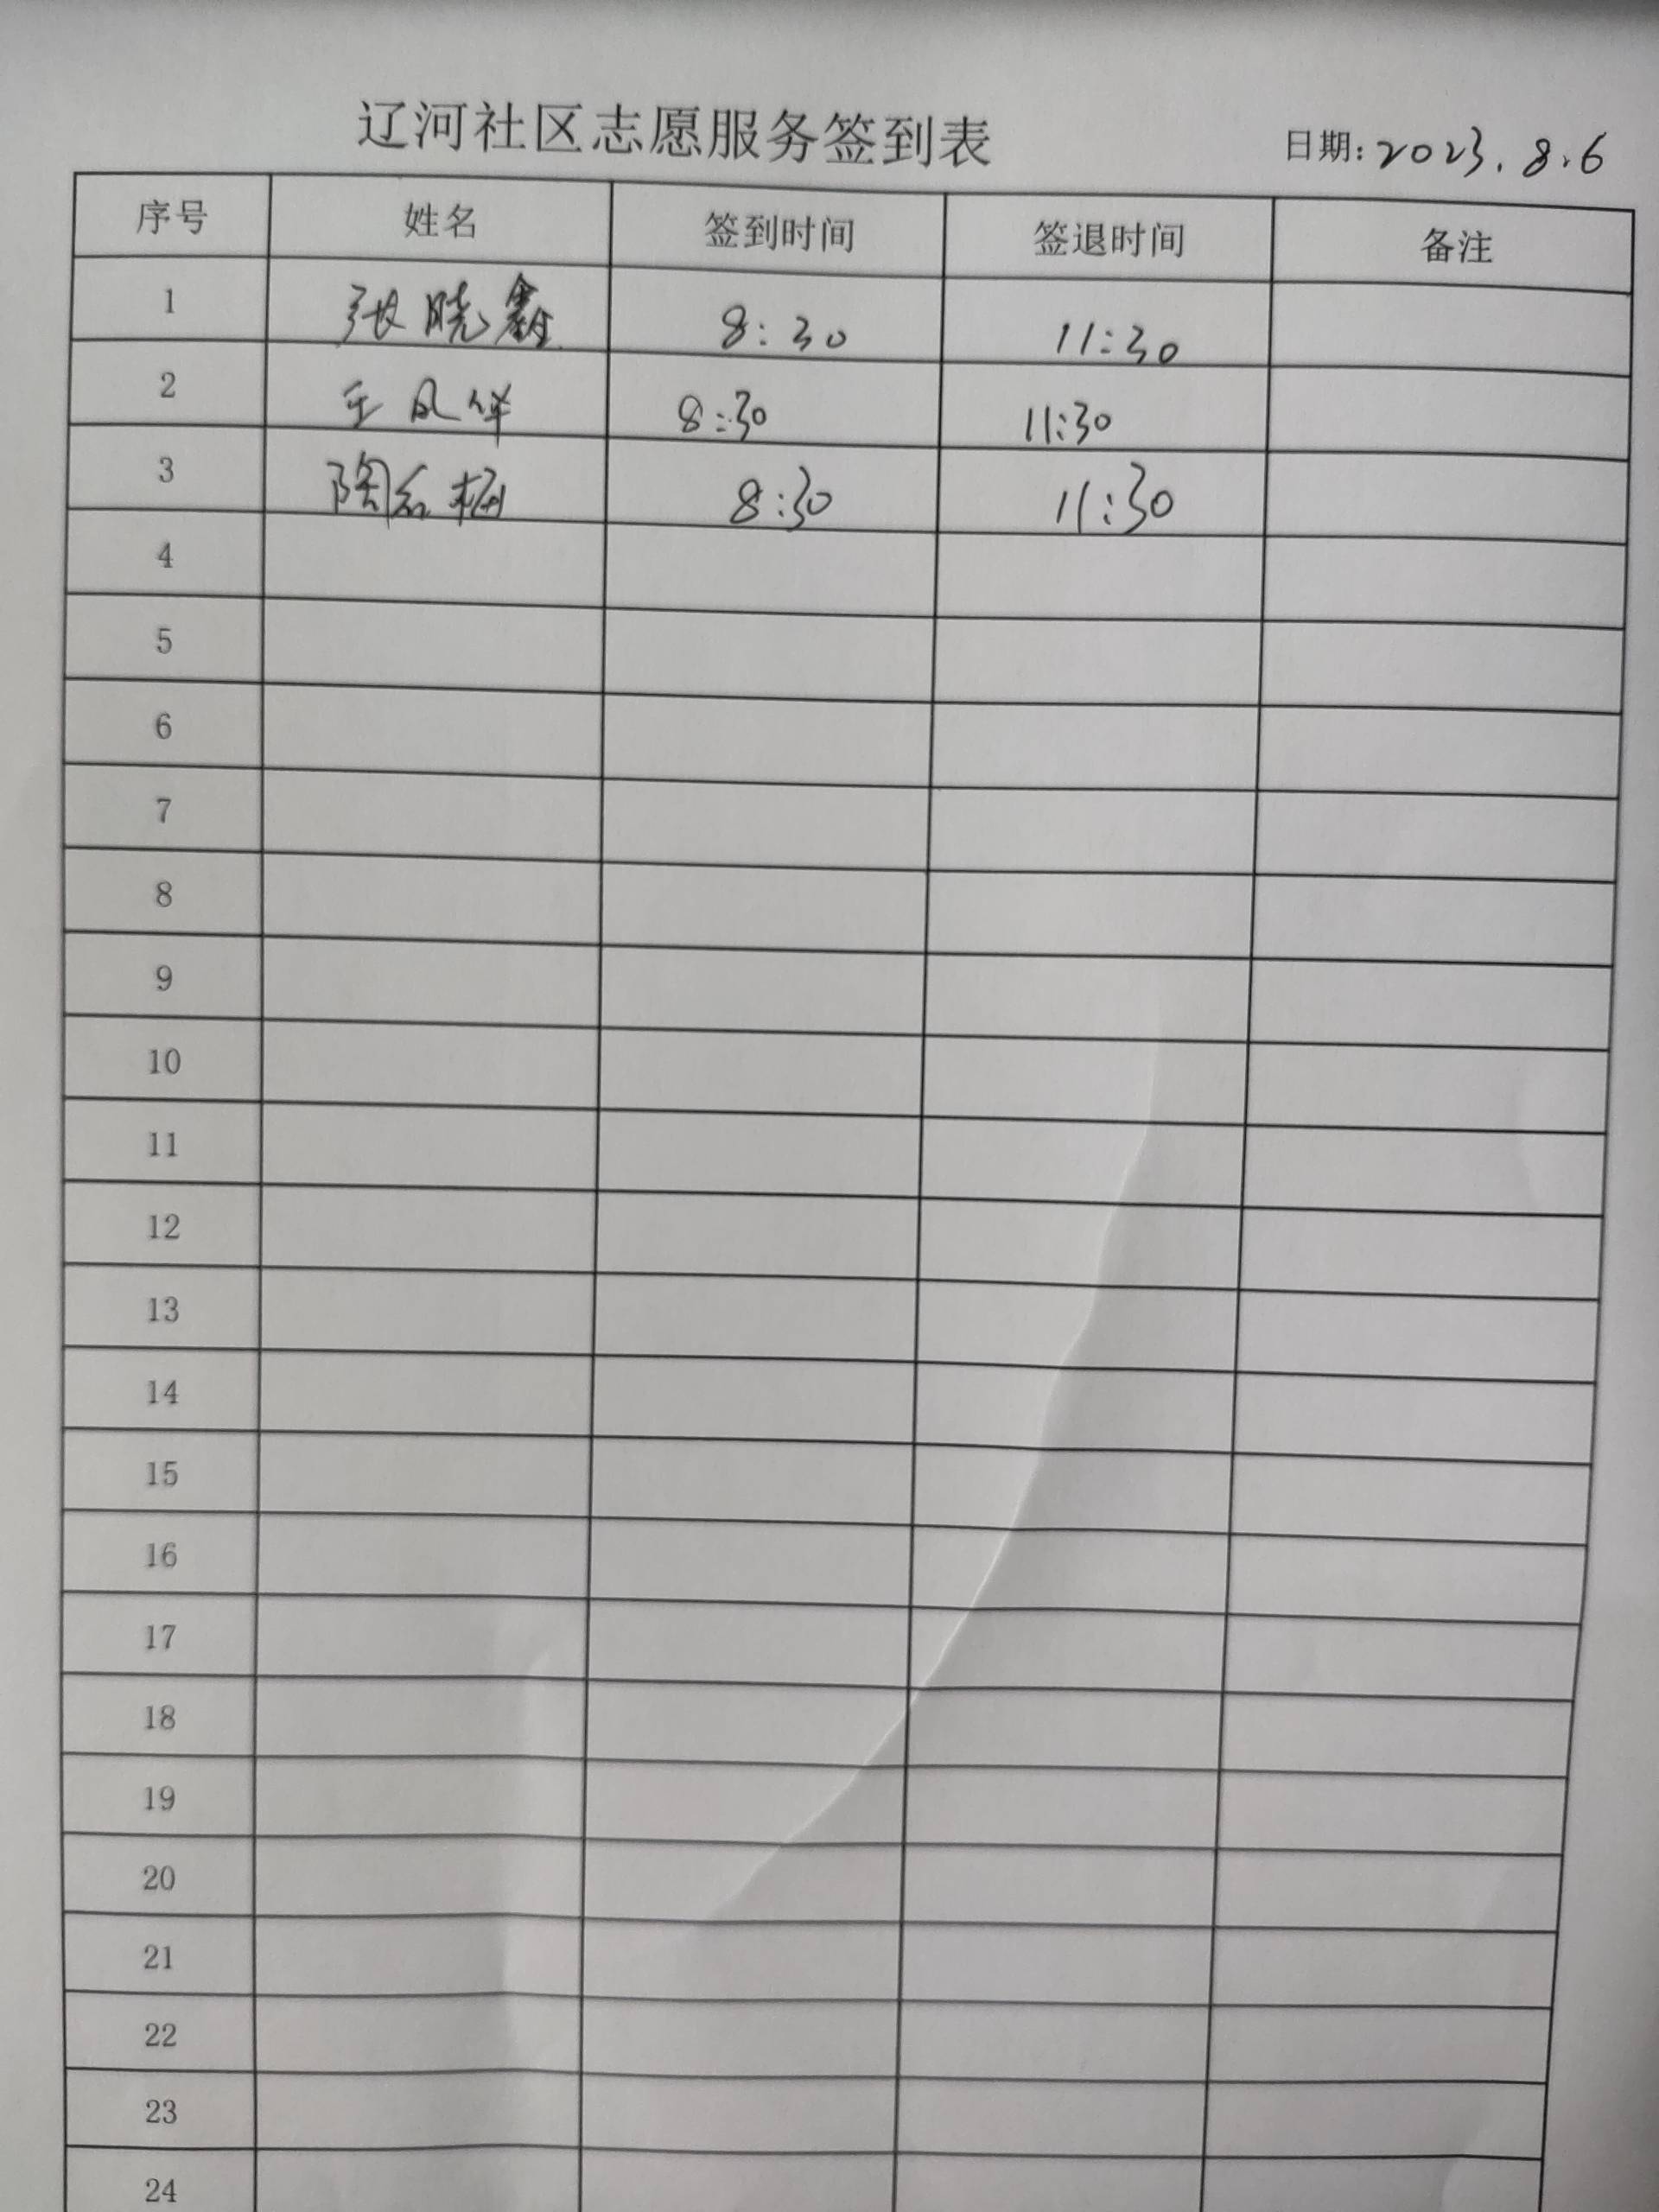 辽河社区志愿服务签到表
日期: 2023.8.6
序号 姓名 签到时间 签退时间 备注
1 张晓鑫 8:30 11:30
2 王凤 8:30 11:30
3 陶 8:30 11:30
4
5
6
7
8
9
10
11
12
13
14
15
16
17
18
19
20
21
22
23
24